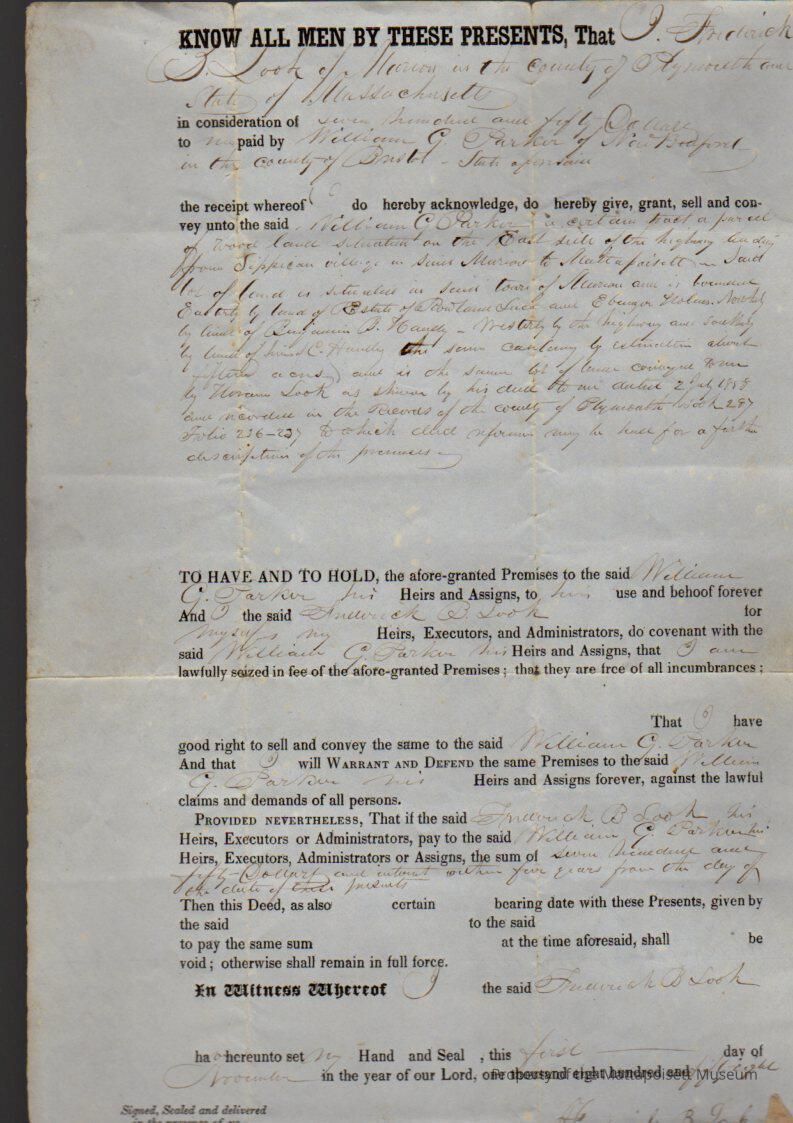 KNOW ALL MEN BY THESE PRESENTS, That I, Frederick
B. Look of Marion in the County of Plymouth and
State of Massachusetts
in consideration of seven hundred and fifty Dollars
to me paid by William G. Parker of New Bedford
in the County of Bristol - State aforesaid
the receipt whereof I do hereby acknowledge, do hereby give, grant, sell and con-
vey unto the said William G Parker a certain tract or parcel
of wood land situated on the East side of the highway leading
from Sippican village in said Marion to Mattapoisett - Said
lot of land is situated in said town of Marion and is bounded
Easterly by land of Estate of Rowland Luce and Ebenezer Holmes Northerly
by land of Benjamin B. Handy - Westerly by the highway and Southerly
by land of C. Handy the same containing by estimation about
fifteen acres and is the same lot of land conveyed to me
by Look as shown by his deed to me dated 2 July 1858
and recorded in the Records of the county of Plymouth Book 287
Folio 236-237 to which deed reference may be had for a further
description of the premises -
TO HAVE AND TO HOLD, the afore-granted Premises to the said William
G. Parker his Heirs and Assigns, to his use and behoof forever
And I the said Frederick B. Look for
myself & my Heirs, Executors, and Administrators, do covenant with the
said William G. Parker his Heirs and Assigns, that I am
lawfully seized in fee of the afore-granted Premises; that they are free of all incumbrances;
That I have
good right to sell and convey the same to the said William G. Parker
And that I will WARRANT AND DEFEND the same Premises to the said William
G. Parker his Heirs and Assigns forever, against the lawful
claims and demands of all persons.
PROVIDED NEVERTHELESS, That if the said Frederick B Look his
Heirs, Executors or Administrators, pay to the said William G. Parker his
Heirs, Executors, Administrators or Assigns, the sum of seven hundred and
fifty Dollars and interest within five years from the day of
the date of these presents
Then this Deed, as also certain bearing date with these Presents, given by
the said to the said
to pay the same sum at the time aforesaid, shall be
void; otherwise shall remain in full force.
In Witness Whereof I the said Frederick B Look
ha hereunto set my Hand and Seal , this first day of
November in the year of our Lord, one thousand eight hundred and fifty eight
Property of the Mattapoisett Museum
Signed, Sealed and delivered
in the presence of us